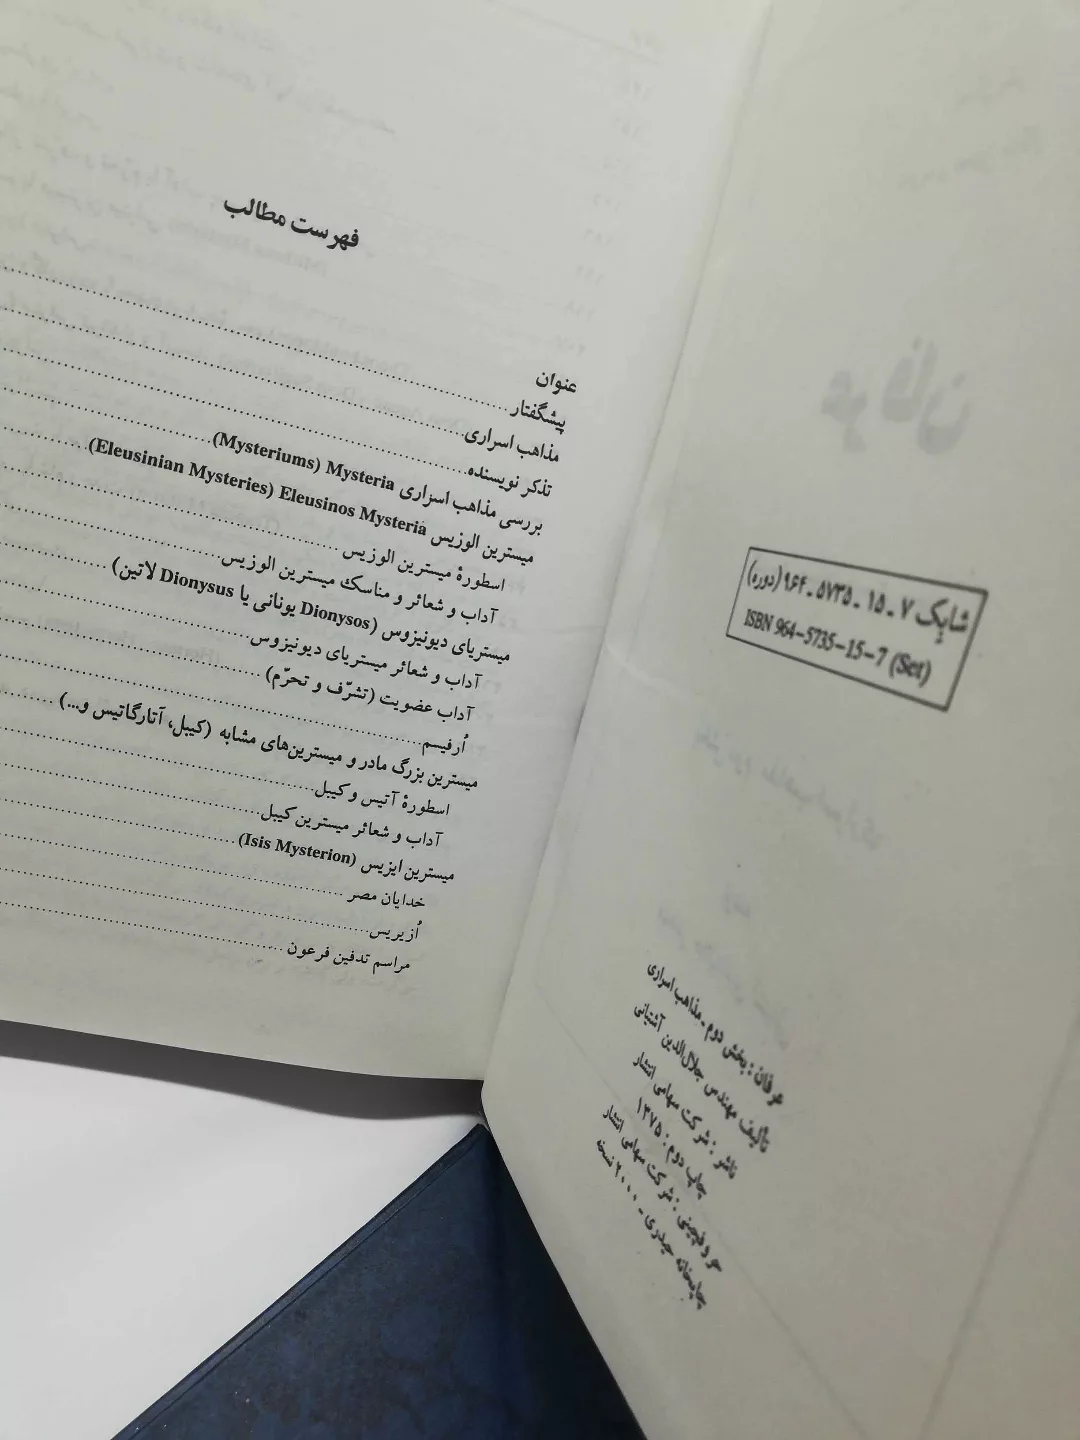 شابک ۷ ـ ۱۵ ـ ۵۷۳۵ ـ ۹۶۴ (دوره)
ISBN 964-5735-15-7 (Set)
عرفان : بخش دوم ـ مذاهب اسراری
تألیف مهندس جلال‌الدین آشتیانی
ناشر : شرکت سهامی انتشار
چاپ دوم : ۱۳۷۵
حروفچینی : شرکت سهامی انتشار
چاپخانه حیدری ـ ۲۰۰۰ نسخه
فهرست مطالب
عنوان
پیشگفتار
مذاهب اسراری
تذکر نویسنده
بررسی مذاهب اسراری Mysteria (Mysteriums)
میسترین الوزیس Eleusinos Mysteria (Eleusinian Mysteries)
اسطورهٔ میسترین الوزیس
آداب و شعائر و مناسک میسترین الوزیس
میستریای دیونیزوس (Dionysos یونانی یا Dionysus لاتین)
آداب و شعائر میستریای دیونیزوس
آداب عضویت (تشرّف و تحرّم)
اُرفیسم
میسترین بزرگ مادر و میسترین‌های مشابه (کیبل، آتارگاتیس و...)
اسطورهٔ آتیس و کیبل
آداب و شعائر میسترین کیبل
میسترین ایزیس (Isis Mysterion)
خدایان مصر
اُزیریس
مراسم تدفین فرعون